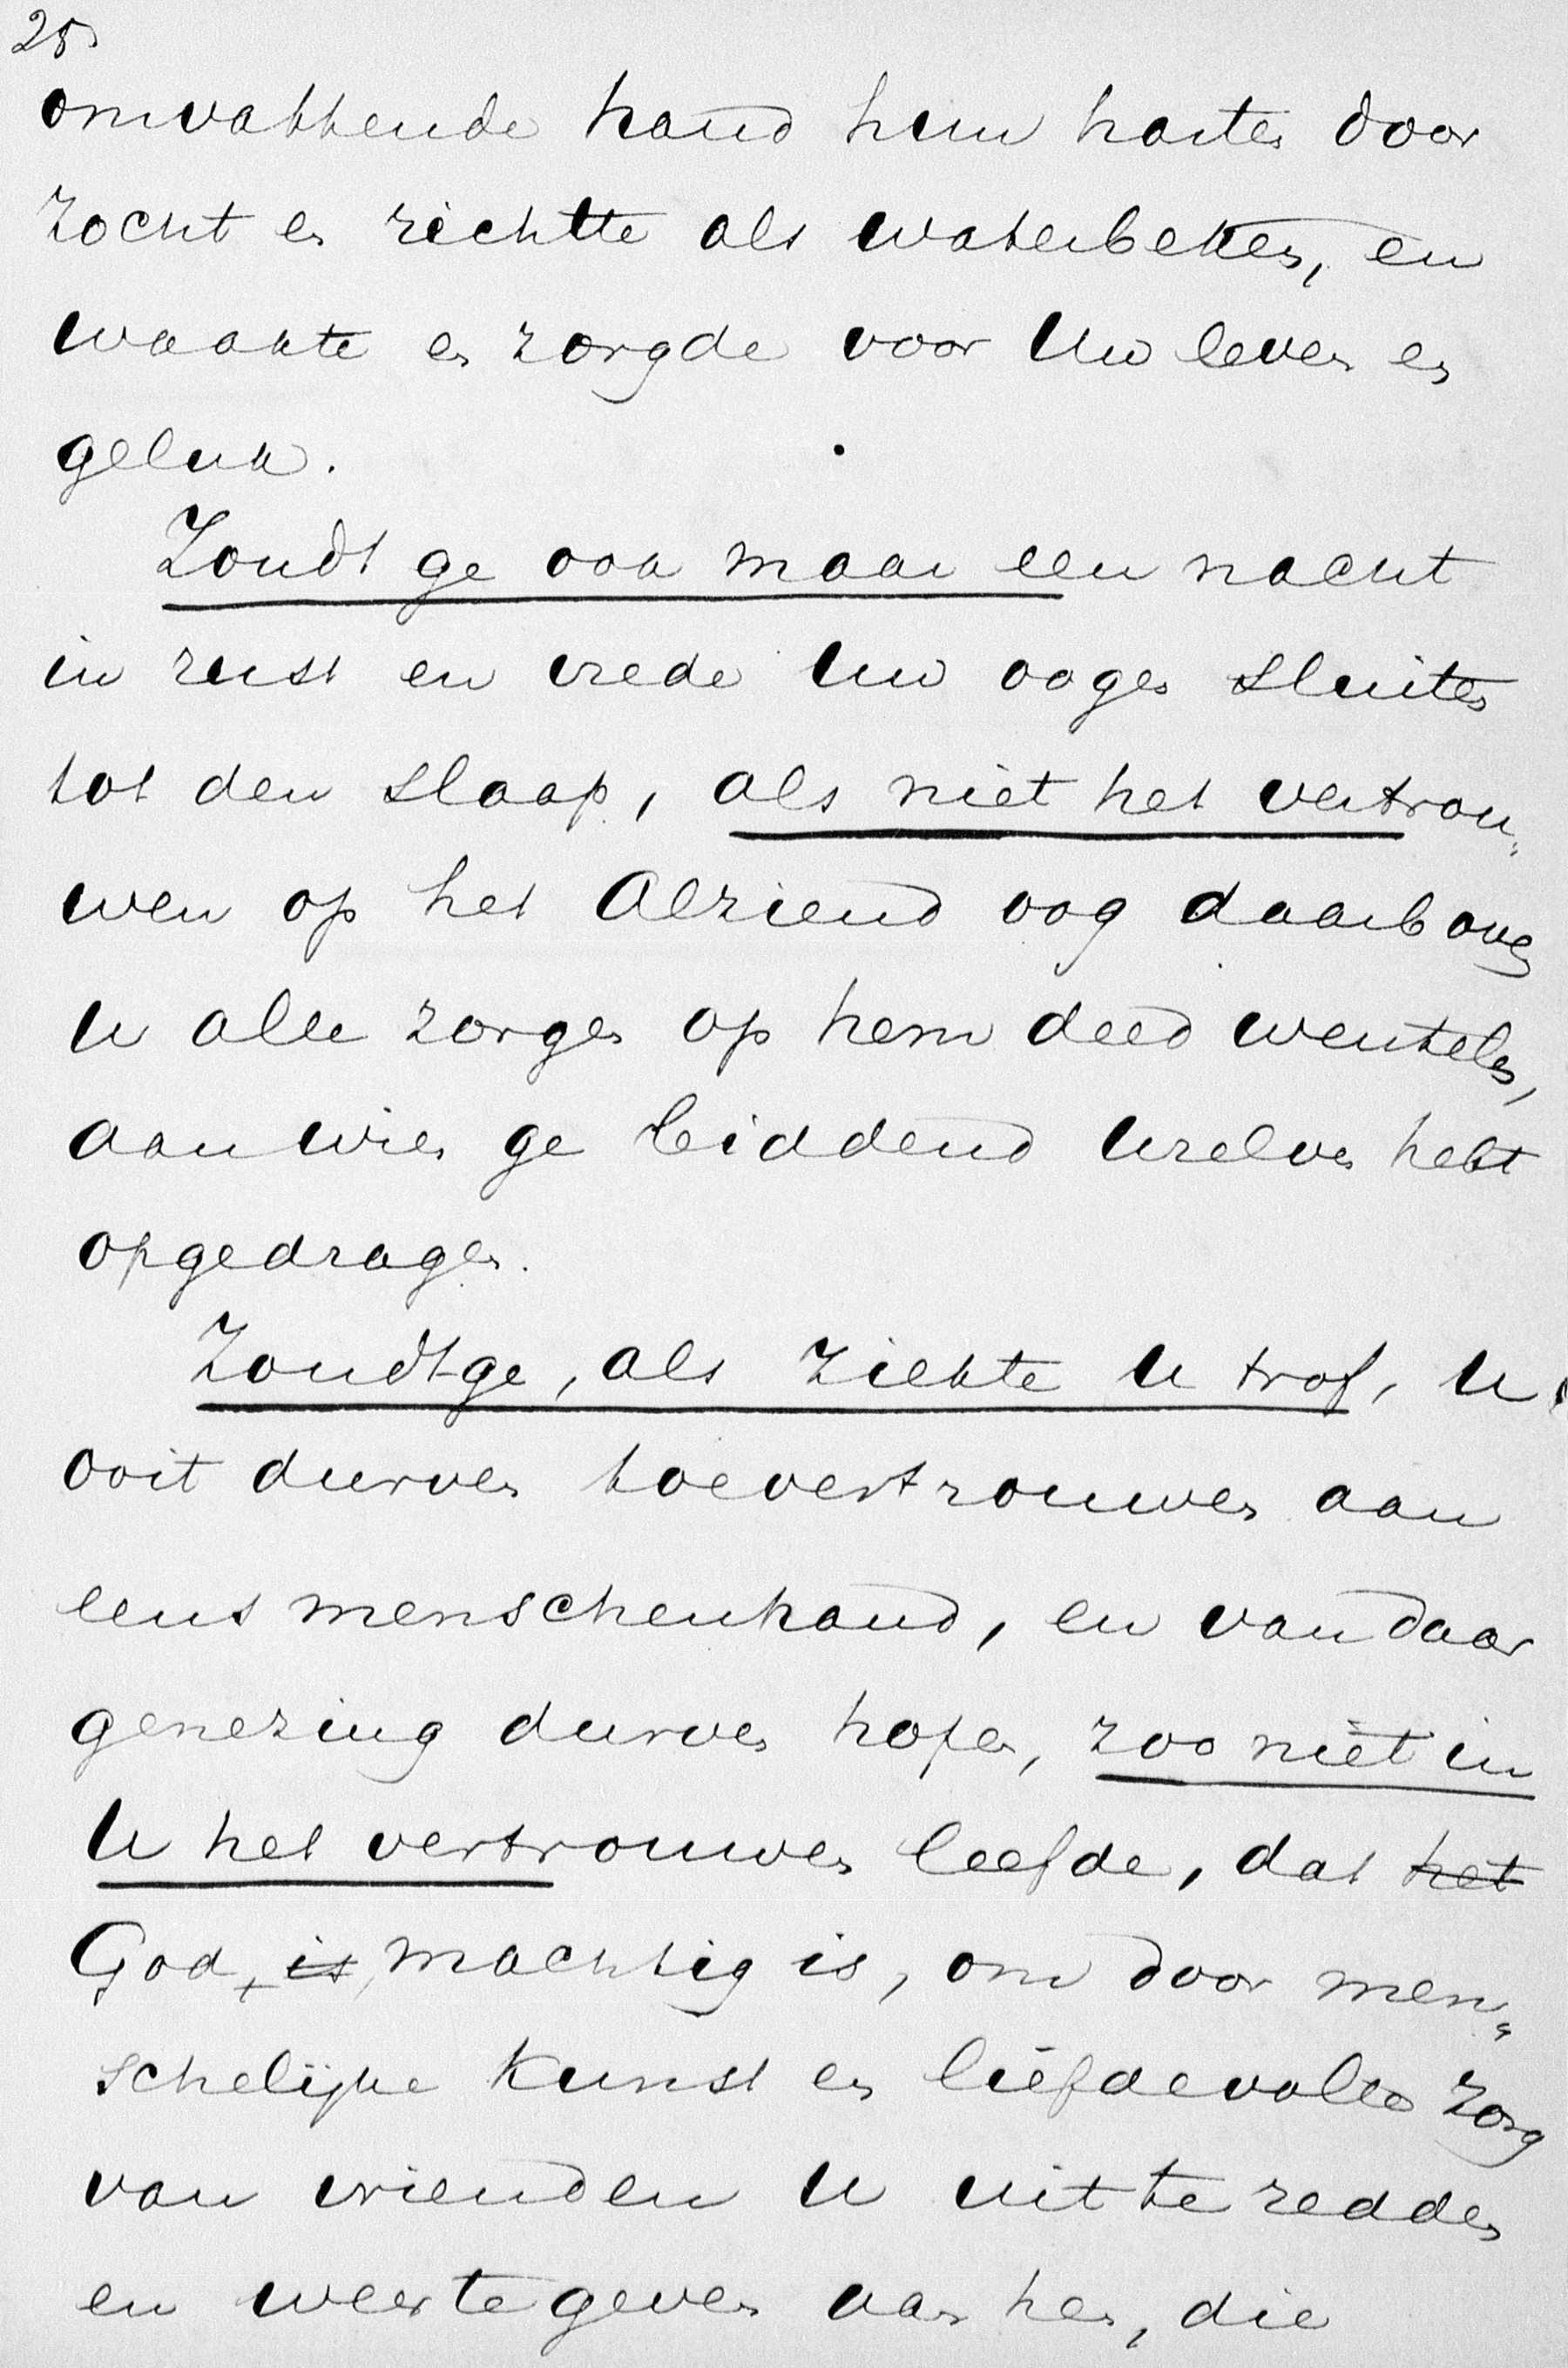 25
omvattende hand hun harten door
zocht en richtte als waterbeken, en
waakte en zorgde voor Uw leven en
geluk.
Zoudt ge ook maar een nacht
in rust en vrede Uw oogen sluiten
tot den slaap, als niet het vertrou„
wen op het Alziend oog daarboven
U alle zorgen op hem deed wentelen,
aan wien ge biddend Uzelven hebt
opgedragen.
Zoudt ge, als ziekte U trof, U
ooit durven toevertrouwen aan
eens menschenhand, en van daar
genezing durven hopen, zoo niet in
U het vertrouwen leefde, dat het
God, is, machtig is, om door men„
schelijke kunst en liefdevolle zorg
van vrienden U uit te redden
en weer te geven aan hen, die